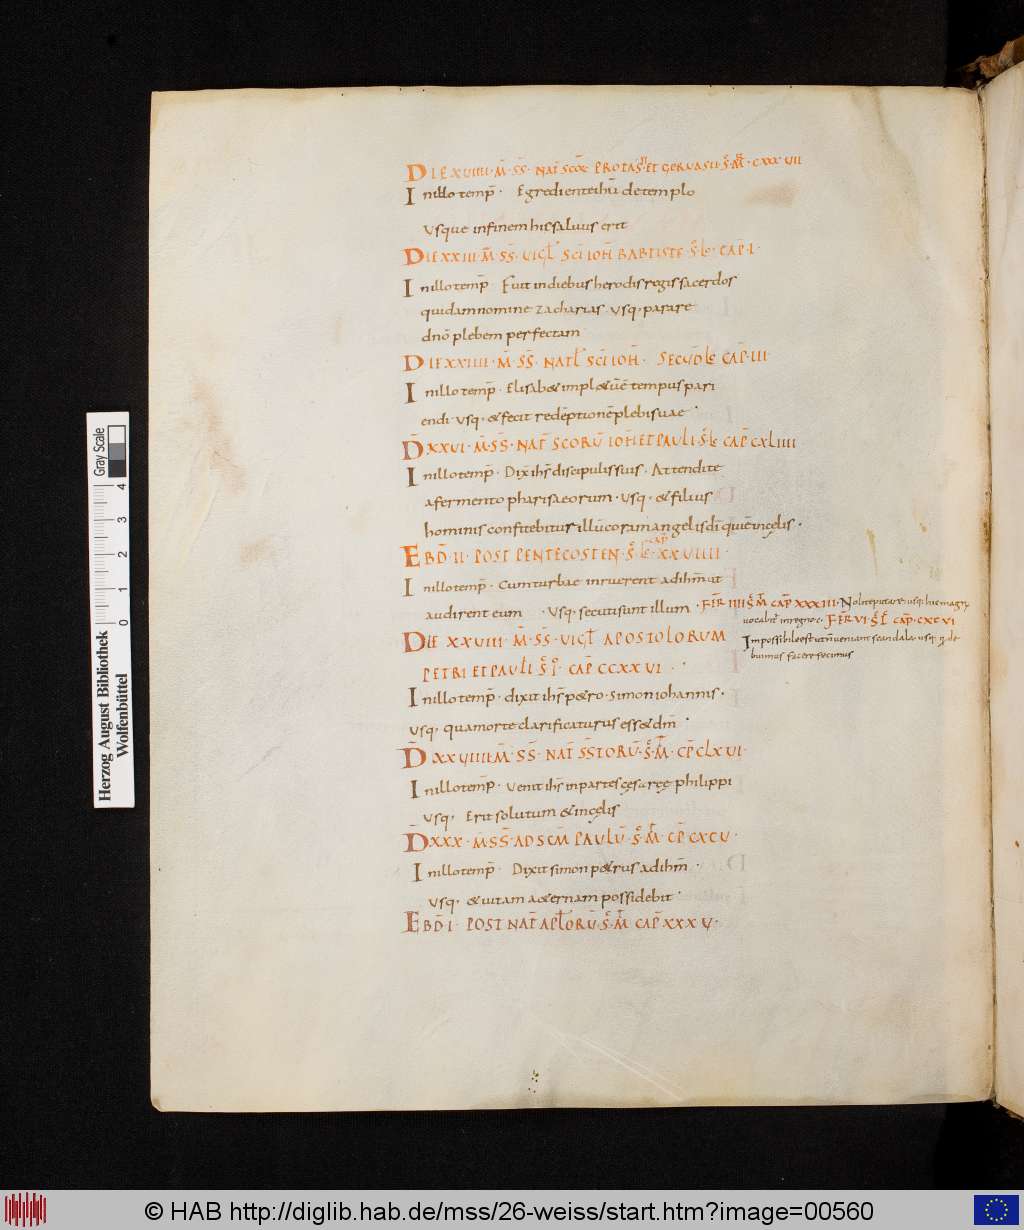 DIE XVIIII · M̄ · SS̄ · NAT̄ SCŌ℞ PROTASII ET GERVASII · S̄ · M̄ · CXXXVII
In illo temp̄ · Egrediente ihū de templo
Usque in finem hic saluus erit
DIE XXIII · M̄ SS̄ · VIGL̄ SCI IOH̄ BABTISTE S̄ · L̄c · CAP̄ · I ·
In illo temp̄ · Fuit in diebus herodis regis sacerdos
quidam nomine zacharias usq· parare
dnō plebem perfectam
DIE XXIIII · M̄ · SS̄ · NATL̄ SCI IOH̄ · SECVD̄ L̄c CAP̄ · III ·
In illo temp̄ · Elisab& impl&ū ē tempus pari
endi · usq· & fecit redēptionē plebi suae ·
D̄ XXVI · M̄ · SS̄ · NAT̄ SCORŪ IOH̄ ET PAULI · S̄ · L̄c CAP̄ CXLIIII
In illo temp̄ · Dix̄ ihs̄ discipulis suis · Attendite
a fermento pharisaeorum · usq· & filius
hominis confitebitur illū coram angelis dī qui ē in cęlis ·
EBD̄ · II · POST PENTECOSTEN · S̄ · L̄c · CAP̄ XXVIIII ·
In illo temp̄ · Cum turbae inruerent ad ihm̄ ut
audirent eum · usq· secuti sunt illum · FER̄ IIII S̄ M̄ CAP̄ XXXIII · Nolite putare · usq· hic magn̄
vocabit̄ in regno c· FER̄ VI · S̄ L̄ CAP̄ · CXCVI
Impossibile est ut n̄ veniant scandala · usq· q̄ de
buimus facere fecimus
DIE XXVIII · M̄ · SS̄ · VIGL̄ APOSTOLORUM
PETRI ET PAULI S̄ · I° · CAP̄ CCXXVI · ·
In illo temp̄ · dixit ihs̄ p&ro · simon iohannis ·
usq· qua morte clarificaturus ess& dm̄ ·
D̄ XXVIIII · M̄ · SS̄ · NAT̄ SS̄TORŪ · S̄ · M̄ · CP̄ CLXVI ·
In illo temp̄ · Venit ihs̄ in partes cęsaręę philippi
usq· Erit solutum & in cęlis
D̄ XXX · M̄ · SS̄ · AD SCM̄ PAULŪ · S̄ · M̄ · CP̄ CXCV ·
In illo temp̄ · Dixit simon p&rus ad ihm̄ ·
usq· & uitam a&ernam possidebit ·
EBD̄ · I · POST NAT̄ APL̄ORŪ · S̄ · M̄ CAP̄ XXXV ·
Herzog August Bibliothek
Wolfenbüttel
Gray Scale
0 1 2 3 4
© HAB http://diglib.hab.de/mss/26-weiss/start.htm?image=00560